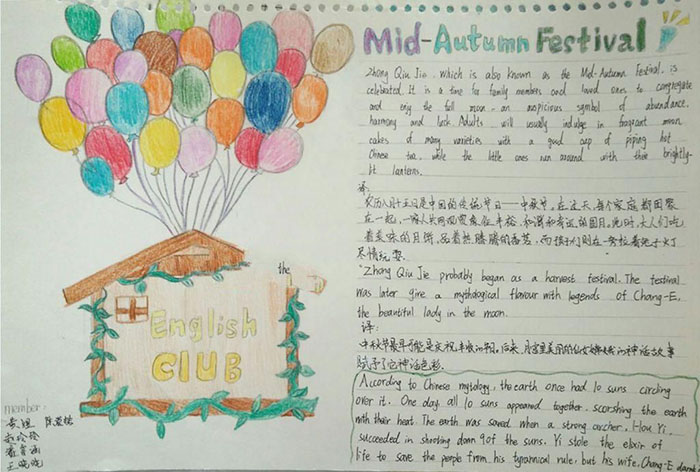 Mid-Autumn Festival
Zhong Qiu Jie, which is also known as the Mid-Autumn Festival, is
celebrated. It is a time for family members and loved ones to congregate
and enjoy the full moon - an auspicious symbol of abundance,
harmony and luck. Adults will usually indulge in fragrant moon
cakes of many varieties with a good cup of piping hot
Chinese tea, while the little ones run around with their brightly-
lit lanterns.
译:
农历八月十五日是中国的传统节日——中秋节。在这天,每个家庭都团聚
在一起,一家人共同观赏象征丰裕、和谐和幸运的圆月。此时,大人们吃
着美味的月饼,品着热腾腾的香茗,而孩子们则在一旁拉着兔子灯
尽情玩耍.
"Zhong Qiu Jie probably began as a harvest festival. The festival
was later give a mythological flavour with legends of Chang-E,
the beautiful lady in the moon.
译:
中秋节最早可能是庆祝丰收的节日。后来,月宫里美丽的仙女嫦娥的神话故事
赋予了它神话色彩.
According to Chinese mytology, the earth once had 10 suns circling
over it. One day, all 10 suns appeared together, scorshing the earth
with their heat. The earth was saved when a strong archer, Hou Yi,
succeeded in shooting down 9 of the suns. Yi stole the elixir of
life to save the people from his tyrannical rule, but his wife, Chang-E
the
English
CLUB
member: